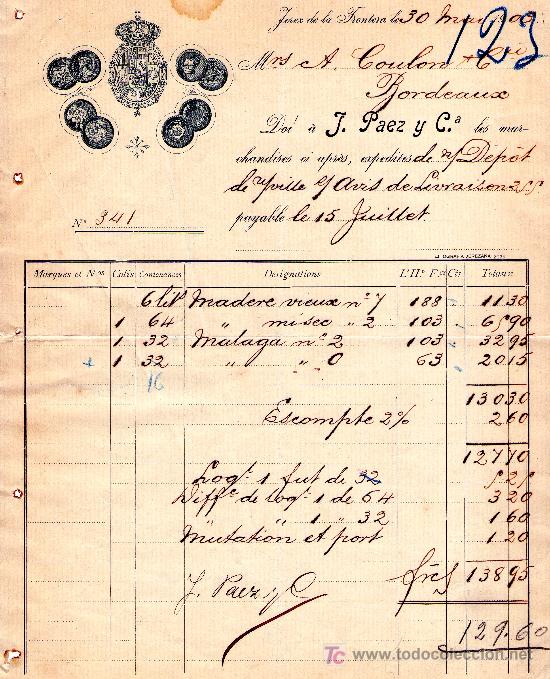 Jerez de la Frontera le 30 Mai 1900
123
Mrs A. Coulon & Cie
Bordeaux
Doi à J. Paez y C.ª les mar-
chandises ci après, expediées de n/ Dépôt
de v/ville s/ Avis de Livraison 255
payable le 15 Juillet.
Nº 341
Marques et Nos Colis Contenances Designations L'Hº Fcs Cts Totaux
6 lit Madere vieux nº 7 188 11.30
1 64 " misec " 2 103 65.90
1 32 Malaga nº 2 103 32.95
1 32 " " 0 63 20.15
16
130.30
Escompte 2% 2.60
127.70
Logt. 1 fut de 32 5.25
Diffce de logt. 1 de 64 3.20
" " 1 " 32 1.60
Mutation et port 1.20
J. Paez y C frcs 138.95
129.60
TC www.todocoleccion.net